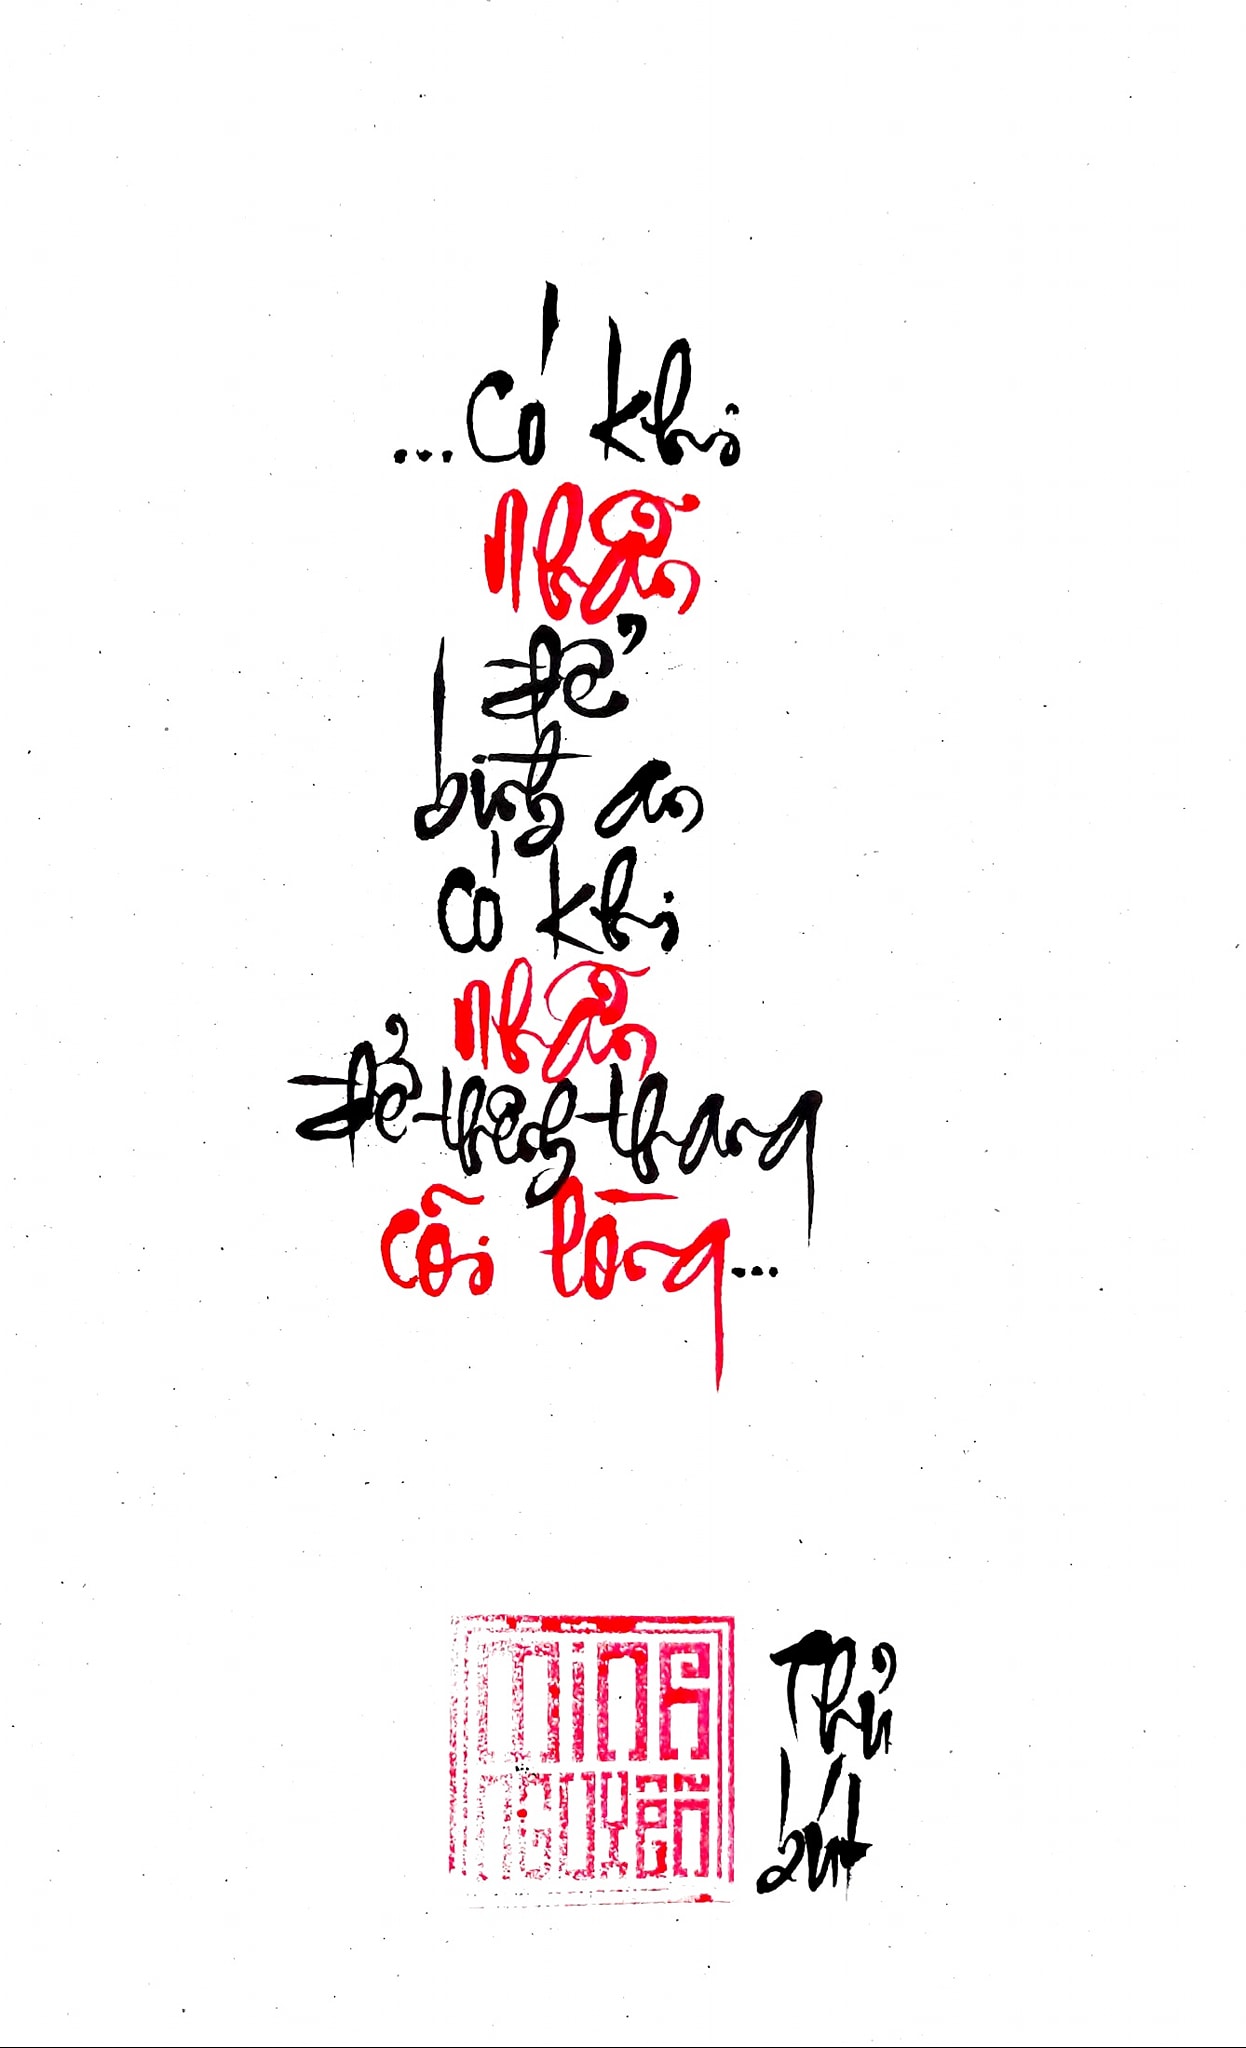 ...Có khi
Nhẫn
để
bình an
có khi
nhẫn
để thênh thang
cõi lòng...
Minh
Nguyễn
Thủ
bút